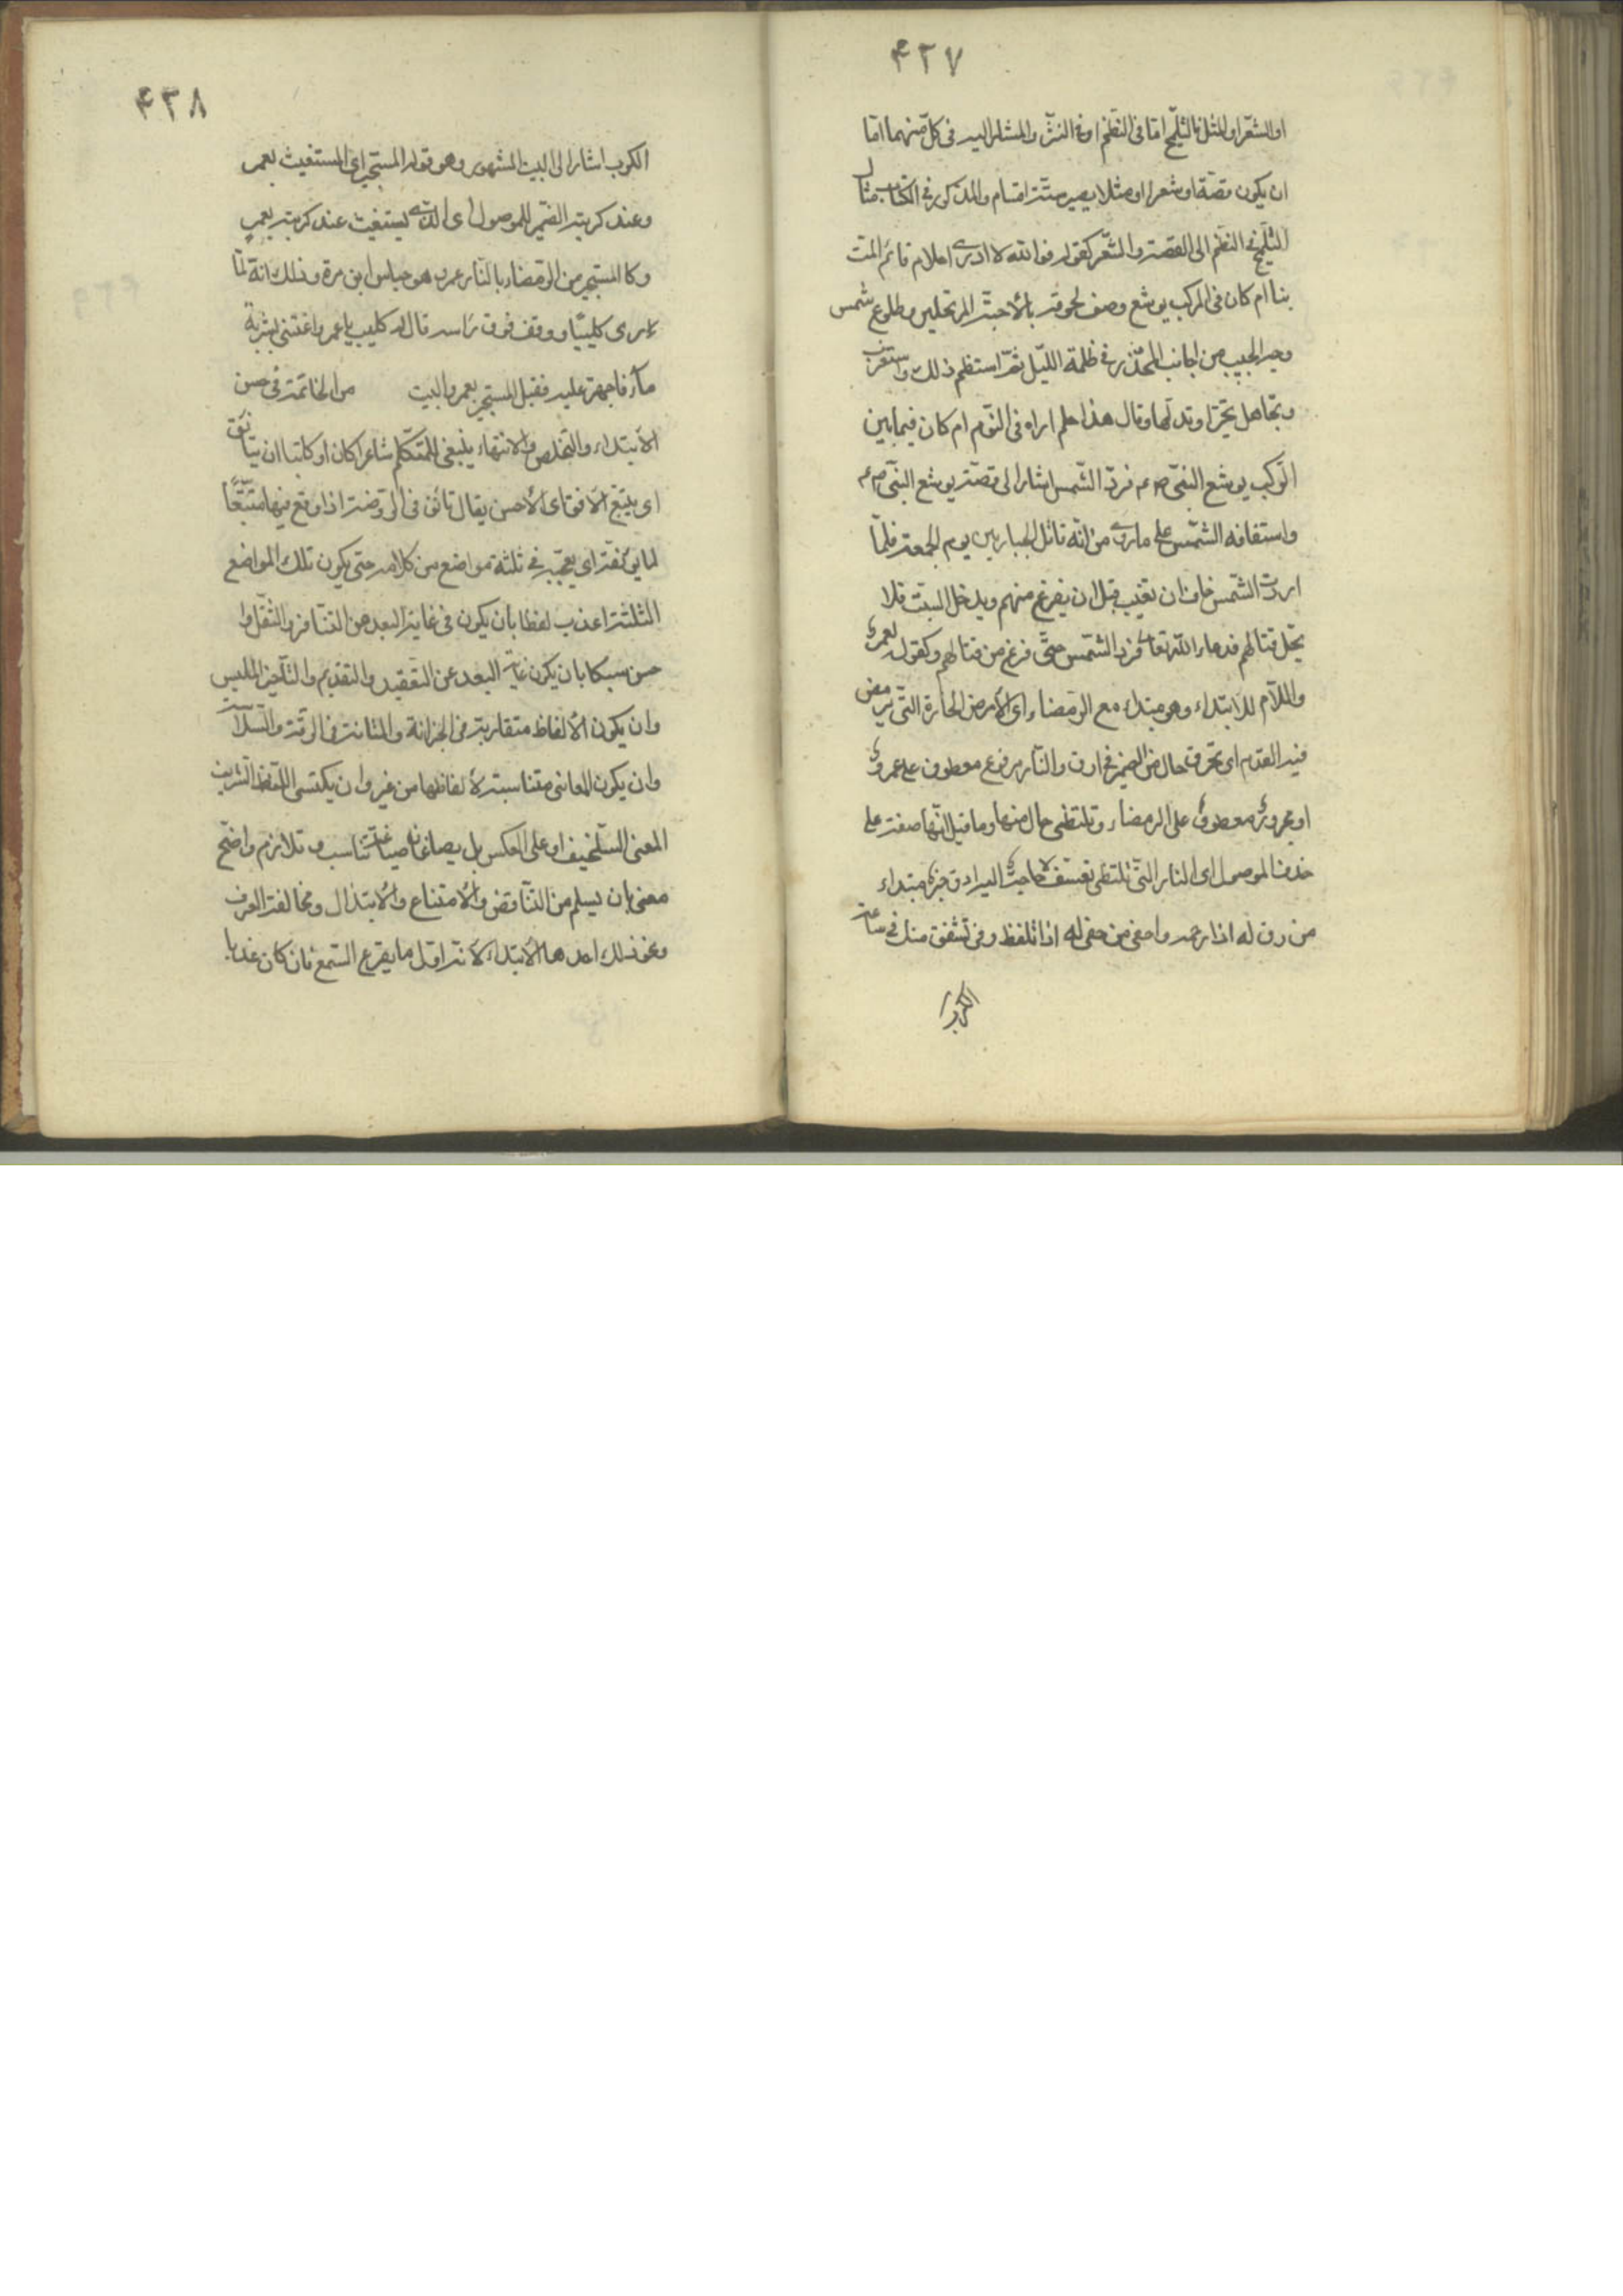 ۴۲۷
او الشعر او المثل فالتلميح اما فى النظم او فى النثر والمشار اليه فى كل منهما اما
ان يكون قصة او شعرا او مثلا يصير ستة اقسام والمذكور فى الكتاب مثال
التلميح فى النظم الى القصة والشعر كقوله فوالله لا ادرى احلام نائم المت
بنا ام كان فى الركب يوشع وصف لحوقه بالأحبة المرتحلين وطلوع شمس
وجه الحبيب من جانب الخدر فى ظلمة الليل ثم استعظم ذلك واستغرب
وتجاهل تحيرا وتدلها وقال هذا حلم اراه فى النوم ام كان فيما بين
الركب يوشع النبى ع م فرد الشمس اشارا لى قصة يوشع النبى ع م
واستقافه الشمس على ما روى من انه قاتل الجبارين يوم الجمعة فلما
ادبرت الشمس خاف ان تغيب قبل ان يفرغ منهم ويدخل السبت فلا
يحل قتالهم فدعا الله تعالى فرد الشمس حتى فرغ من قتالهم وكقوله لعمرو
واللام للابتداء وهو مبتداء مع الرمضاء اى الأرض الحارة التى ترمض
فيه القدم اى تحرق حال من الضمير فى ارق والنار مرفوع معطوف على عمرو
او مجرور معطوف على الرمضاء وتلتظى حال منها وما قيل انها صفة على
حذف الموصول اى النار التى تلتظى تعسف لا حاجة اليه ارق خبره مبتداء
من رق له اذا رحمه واحفى من حفى له اذا تلطف وفى تشفق منك فى ساعة
الكرب
۴۲۸
الكرب اشارا لى البيت المشهور وهو قوله المستجير اى المستغيث بعمرو
وعند كربته الضمير للموصول اى الذى يستغيث عند كربته بعمرو
وكالمستجير من الرمضاء بالنار عمرو هو جساس ابن مرة وذلك انه لما
رمى كليبا ووقف فوق رأسه قال له كليب يا عمرو اغثنى بشربة
ماء فاجهز عليه فقيل المستجير بعمرو البيت من الخاتمة فى حسن
الأبتداء والتخلص والانتهاء ينبغى للمتكلم شاعرا كان او كاتبا ان يتأنق
اى يتبع الآنق اى الأحسن يقال تأنق فى الروضة اذا وقع فيها متتبعا
لما يونقه اى يعجبه فى ثلثة مواضع من كلامه حتى يكون تلك المواضع
الثلثة اعذب لفظا بأن يكون فى غاية البعد من التنافر والثقل وا
حسن سبكا بان يكون غاية البعد عن التعقيد والتقديم والتأخير الملبس
وان يكون الألفاظ متقاربة فى الجزالة والمتانة والرقة والسلاسة
وان يكون المعانى متناسبة لألفاظها من غير ان يكتسى اللفظ الشريف
المعنى السخيف او على العكس بل يصاغان صياغة تناسب وتلائم واصح
معنى بان يسلم من التناقض والأمتناع والأبتذال ومخالفة العرف
ونحو ذلك احدها الأبتداء لأنه اول ما يقرع السمع فان كان عذبا